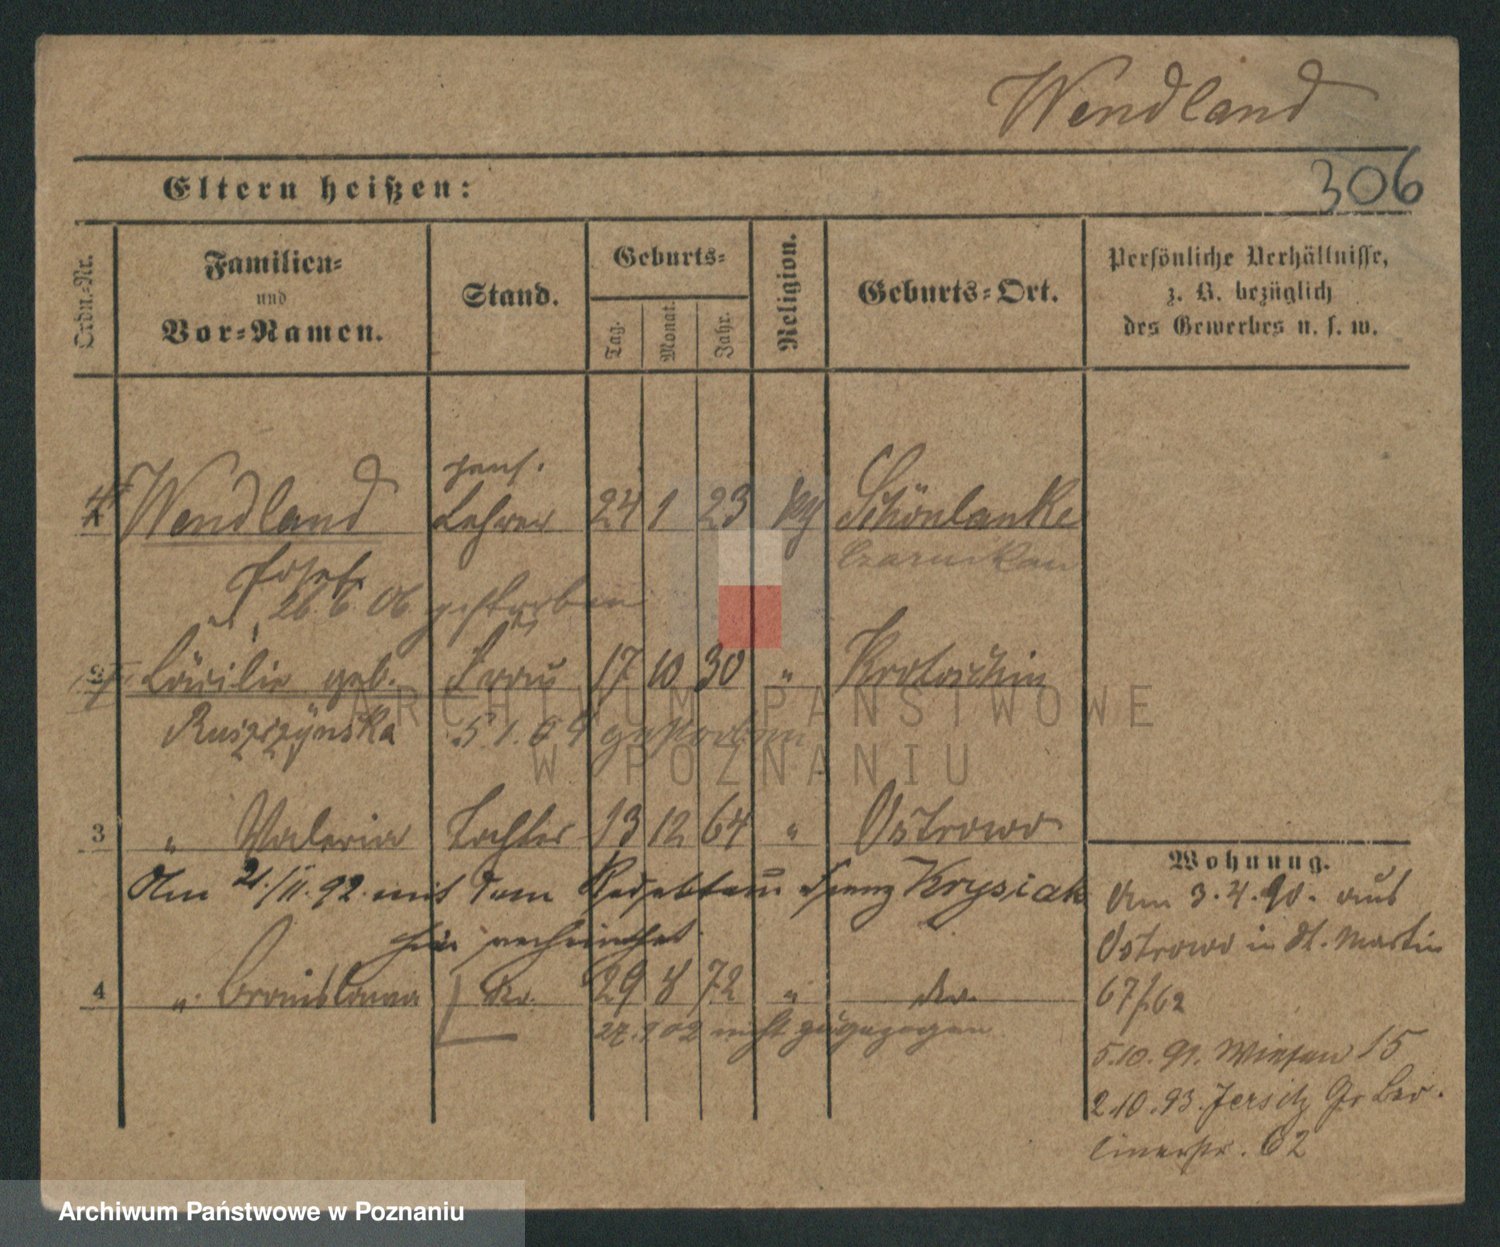 Wendland
306
Eltern heißen:
Ordn.-Nr.
Familien- und Vor-Namen.
Stand.
Geburts-
Tag.
Monat.
Jahr.
Religion.
Geburts-Ort.
Persönliche Verhältnisse,
z. B. bezüglich
des Gewerbes u. s. w.
pens.
1 Wendland Lehrer 24 1 23 kth Schönlanke
Josef Czarnikau
26 6 06 gestorben
2 Cäcilie geb. Frau 17 10 30 " Krotoschin
Ruszczyńska 5 1. 09 gestorben
3 " Valeria Tochter 13 12 64 " Ostrowo
Am 21./11. 92. mit dem Redakteur Franz Krysiak
hier verheirathet.
4 " Bronislawa do. 29 8 72 " do.
27. 9 02 nicht zugezogen
Wohnung.
Am 3. 4. 90. aus
Ostrowo in St. Martin
67/62
5. 10. 91. Wiesen 15
2. 10. 93. Jersitz Gr Ber-
linerstr. 62
ARCHIWUM PAŃSTWOWE
W POZNANIU
Archiwum Państwowe w Poznaniu